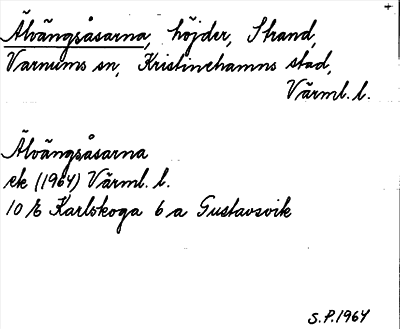 Älvängsåsarna, höjder, Strand,
Varnums sn, Kristinehamns stad,
Värml. l.
Älvängsåsarna
ek (1964) Värml. l.
10 E Karlskoga 6 a Gustavsvik
S.P. 1964